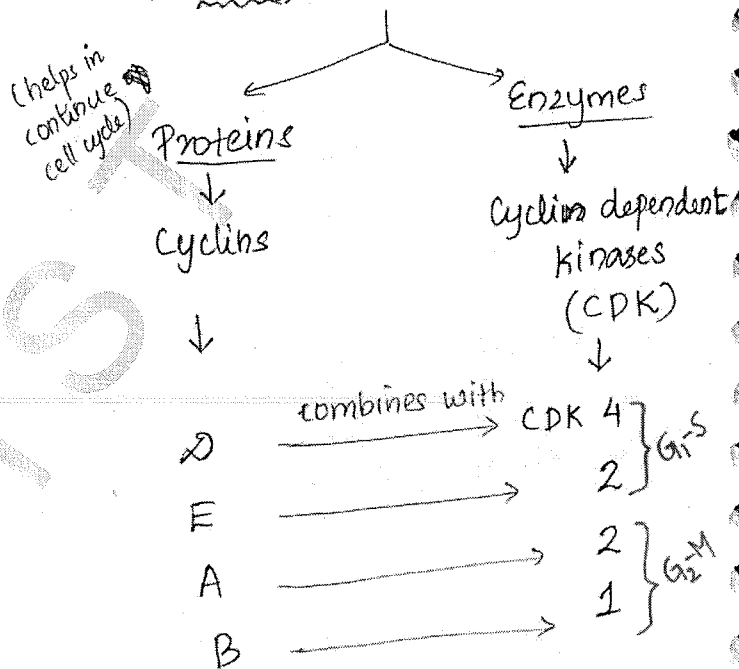 (helps in
continue
cell cycle)
Proteins
Enzymes
↓
↓
Cyclins
Cyclin dependent
kinases
(CDK)
↓
↓
D combines with → CDK 4
E → 2
} G1-S
A → 2
B → 1
} G2-M